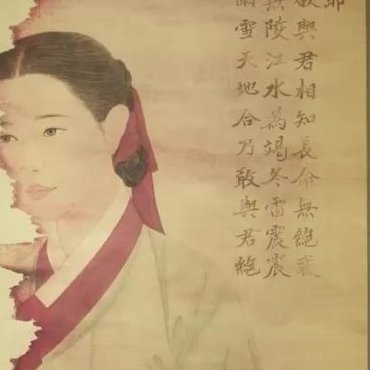 耶
與君相知長命無絶衰
無陵江水為竭冬雷震震
雨雪天地合乃敢與君絶